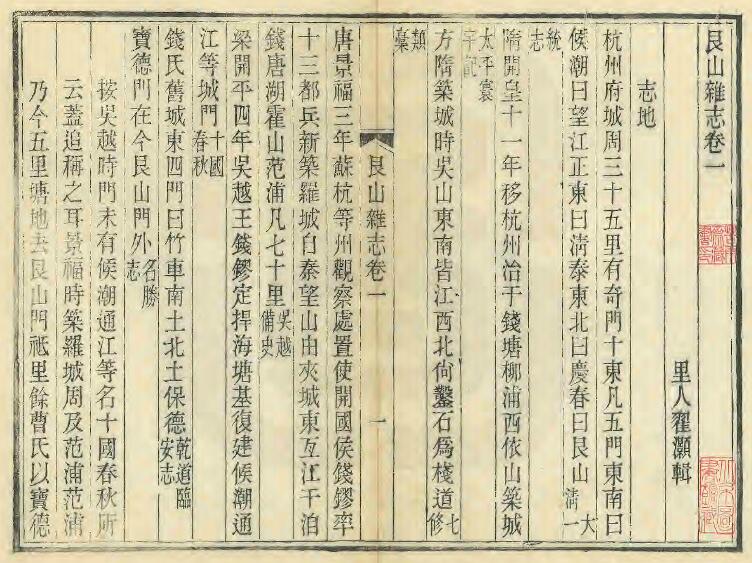 艮山雜志卷一
里人翟灝輯
志地
杭州府城周三十五里有奇門十東凡五門東南曰
候潮曰望江正東曰淸泰東北曰慶春曰艮山大淸一
統志
隋開皇十一年移杭州治于錢塘柳浦西依山築城
太平寰宇記
方隋築城時吳山東南皆江西北尙鑿石爲棧道七修
類稾
艮山雜志卷一
一
唐景福三年蘇杭等州觀察處置使開國侯錢鏐率
十三都兵新築羅城自秦望山由夾城東亙江干洎
錢唐湖霍山范浦凡七十里吳越備史
梁開平四年吳越王錢鏐定捍海塘基復建候潮通
江等城門十國春秋
錢氏舊城東四門曰竹車南土北土保德乾道臨安志
寶德門在今艮山門外名勝志
按吳越時門未有候潮通江等名十國春秋所
云蓋追稱之耳景福時築羅城周及范浦范浦
乃今五里塘地去艮山門祗里餘曹氏以寶德